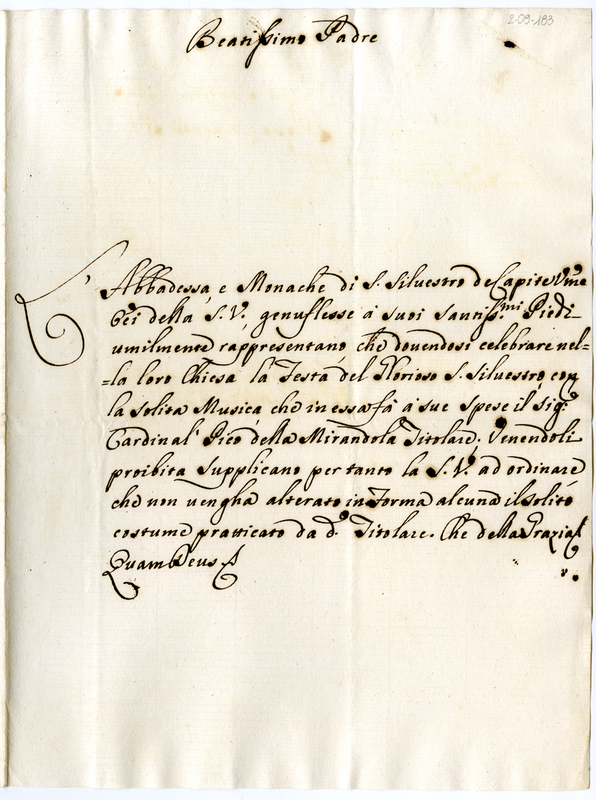 2-09-183
Beatissimo Padre
L'Abbadessa e Monache di S. Silvestro de Capite Um̃e
Or̃i della S.V. genuflesse a' suoi santiss.mi Piedi
umilmente rappresentano che dovendosi celebrare nel=
=la loro Chiesa la Festa del Glorioso S. Silvestro con
la solita Musica che in essa fà a' sue spese il Sig.
Cardinal' Pico della Mirandola Titolare. Venendoli
proibita Supplicano pertanto la S.V. ad ordinare
che non uengha alterato in Forma alcuna il solito
costume pratticato da d.o Titolare. Che della Grazia
Quam Deus